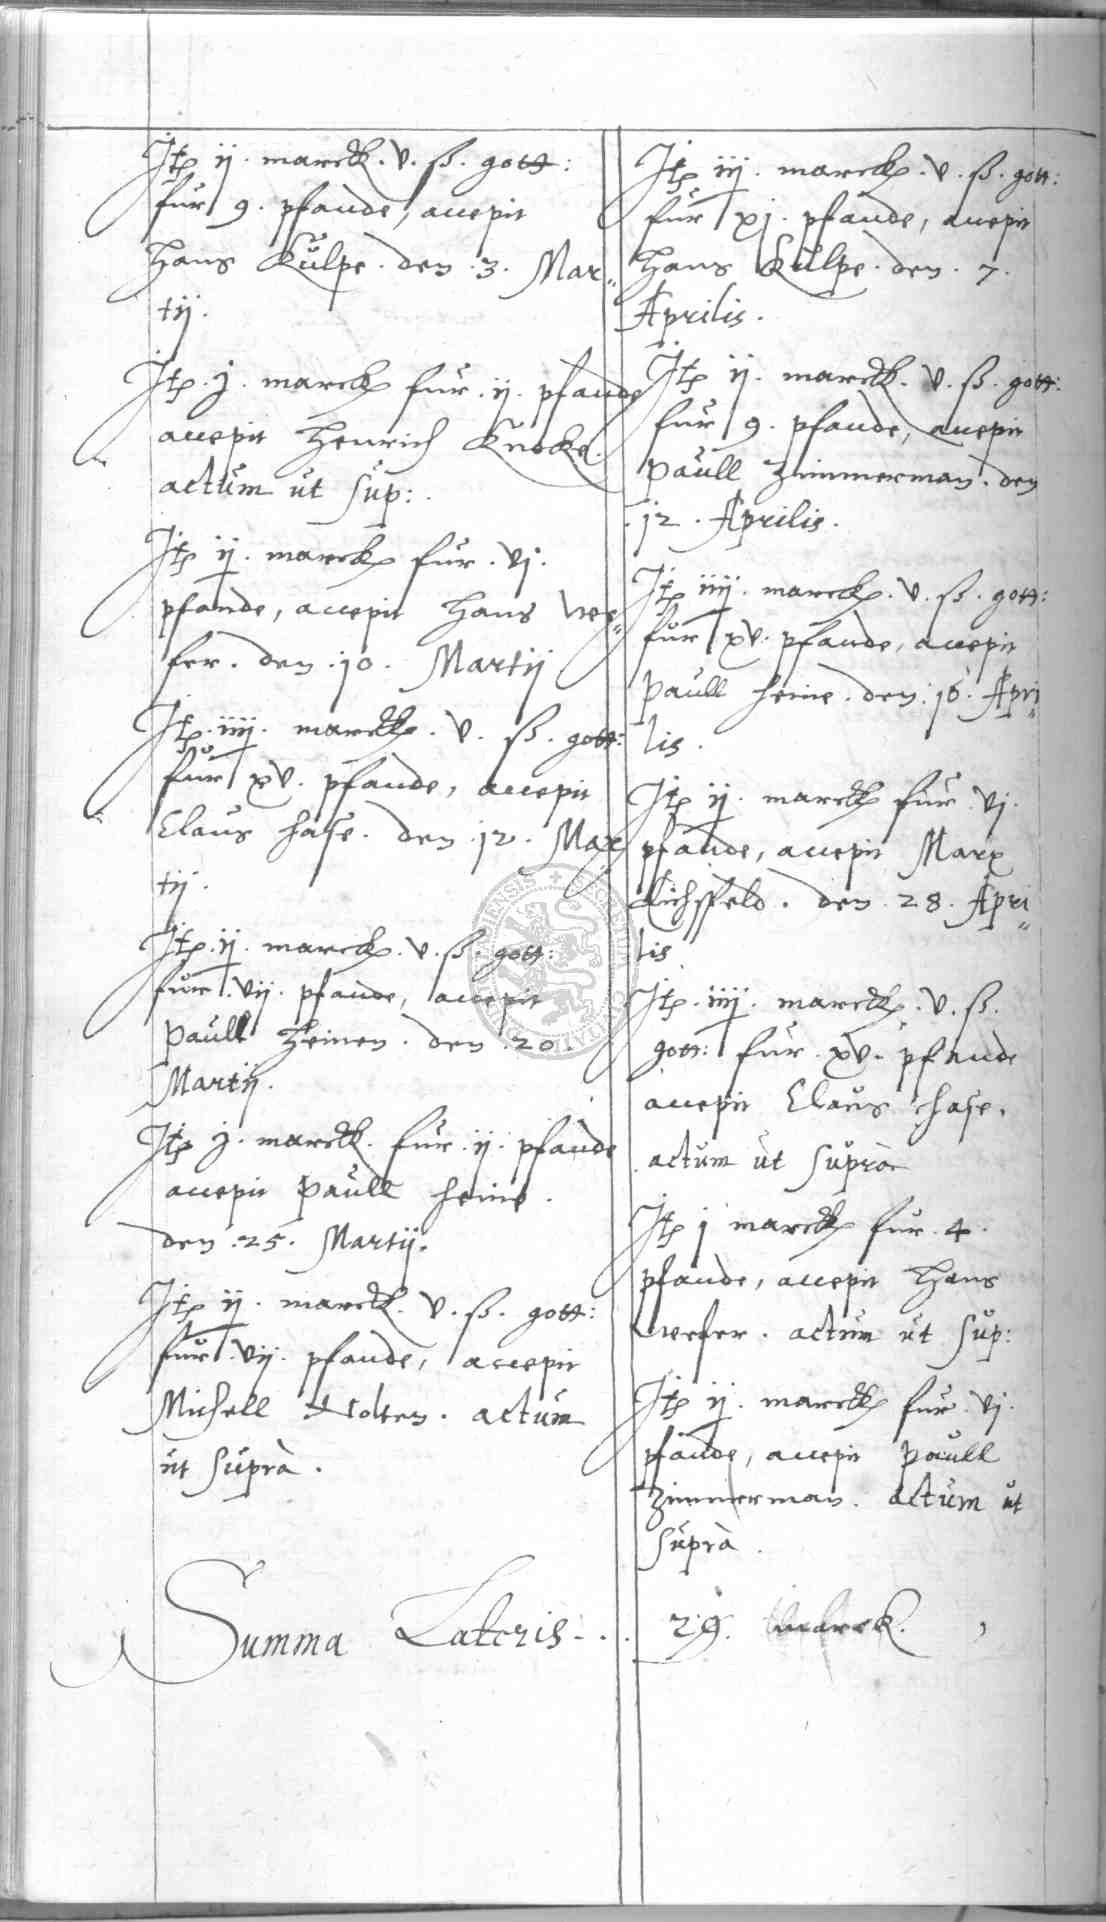 Jtp ij. marck. v. ß. gott:
für 9. pfande, accepit
Hans Külpe. den .3. Mar„
tij.
Jtp. j. marck für .ij. pfande
accepit Henrich Knoke.
actum ut sup:.
Jtp ij. marck für .vj.
pfande, accepit Hans We„
fer. den .10. Martij
Jtp. iiij. marck. v. ß. gott:
für xv. pfande, accepit
Claus Hase. den .12. Mar„
tij.
Jtp. ij. marck. v. ß. gott:
für .vij. pfande, accepit
Paull Heinen. den .20.
Martij.
Jtp j. marck. für .ij. pfande
accepit Paull Heine.
den .25. Martij.
Jtp ij. marck. v. ß. gott:
für .vij. pfande, accepit
Michell Nolten. actum
ut suprà.
Jtp iij. marck. v. ß. gott:
für xj. pfande, accepit
Hans Külpe. den .7.
Aprilis.
Jtp ij. marck. v. ß. gott:
für 9. pfande, accepit
Paull Zimmerman. den
.12. Aprilis.
Jtp iiij. marck. v. ß. gott:
für xv. pfande, accepit
Paull Heine. den .16. Apri„
lis.
Jtp ij. marck für .vj.
pfande, accepit Marx
Eichsfeld. den .28. Apri„
lis
Jtp. iiij. marck. v. ß.
gott: für .xv. pfande
accepit Claus Hase.
actum ut suprà
Jtp j marck für .4.
pfande, accepit Hans
Wefer. actum ut sup:
Jtp ij. marck für .vj.
pfande, accepit Paull
Zimmerman. actum ut
suprà.
Summa Lateris... 29. marck.